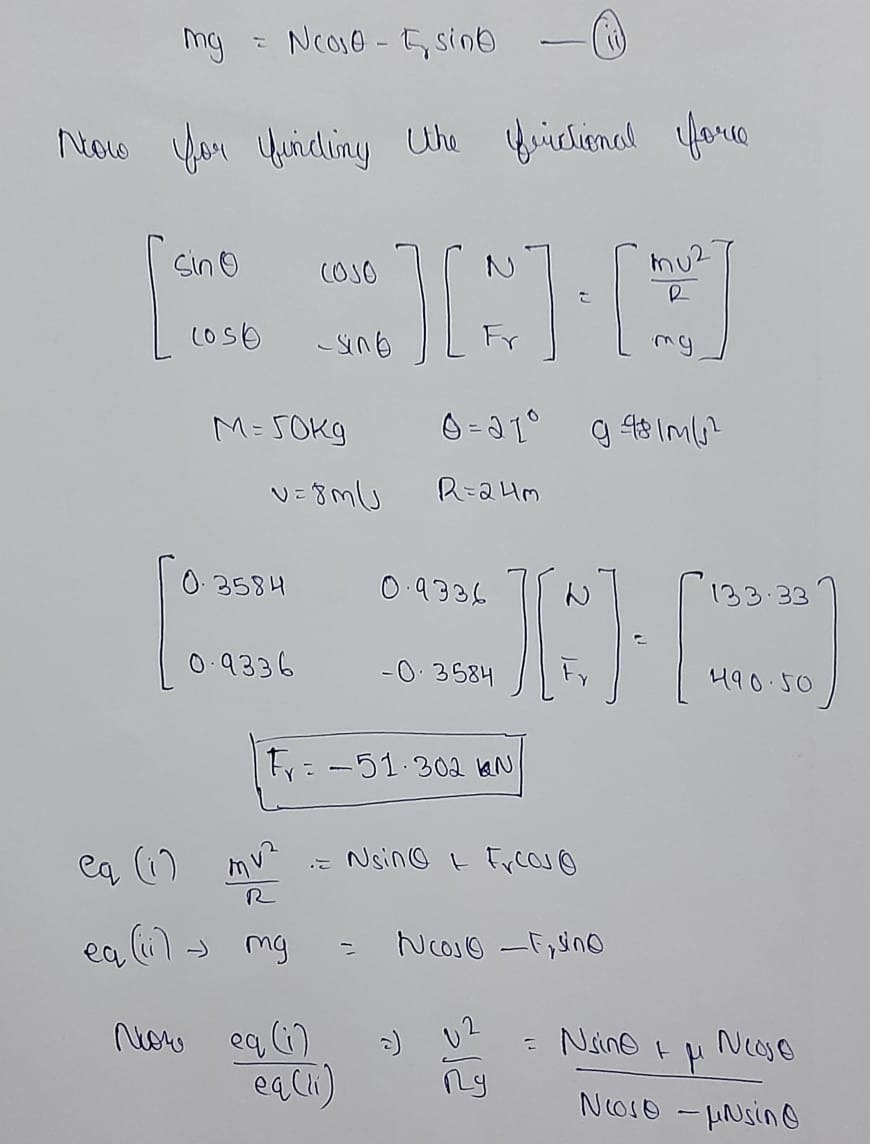 mg = Ncosθ - Fr sinθ — (ii)
Now for finding the frictional force
[ sinθ cosθ ; cosθ -sinθ ] [ N ; Fr ] = [ mv²/R ; mg ]
M = 50Kg θ = 21° g = 9.81 m/s²
v = 8 m/s R = 24m
[ 0.3584 0.9336 ; 0.9336 -0.3584 ] [ N ; Fr ] = [ 133.33 ; 490.50 ]
Fr = -51.302 N
eq (i) mv²/R = Nsinθ + Fr cosθ
eq (ii) → mg = Ncosθ - Fr sinθ
Now eq (i)/eq (ii) => v²/Rg = Nsinθ + μ Ncosθ / Ncosθ - μNsinθ